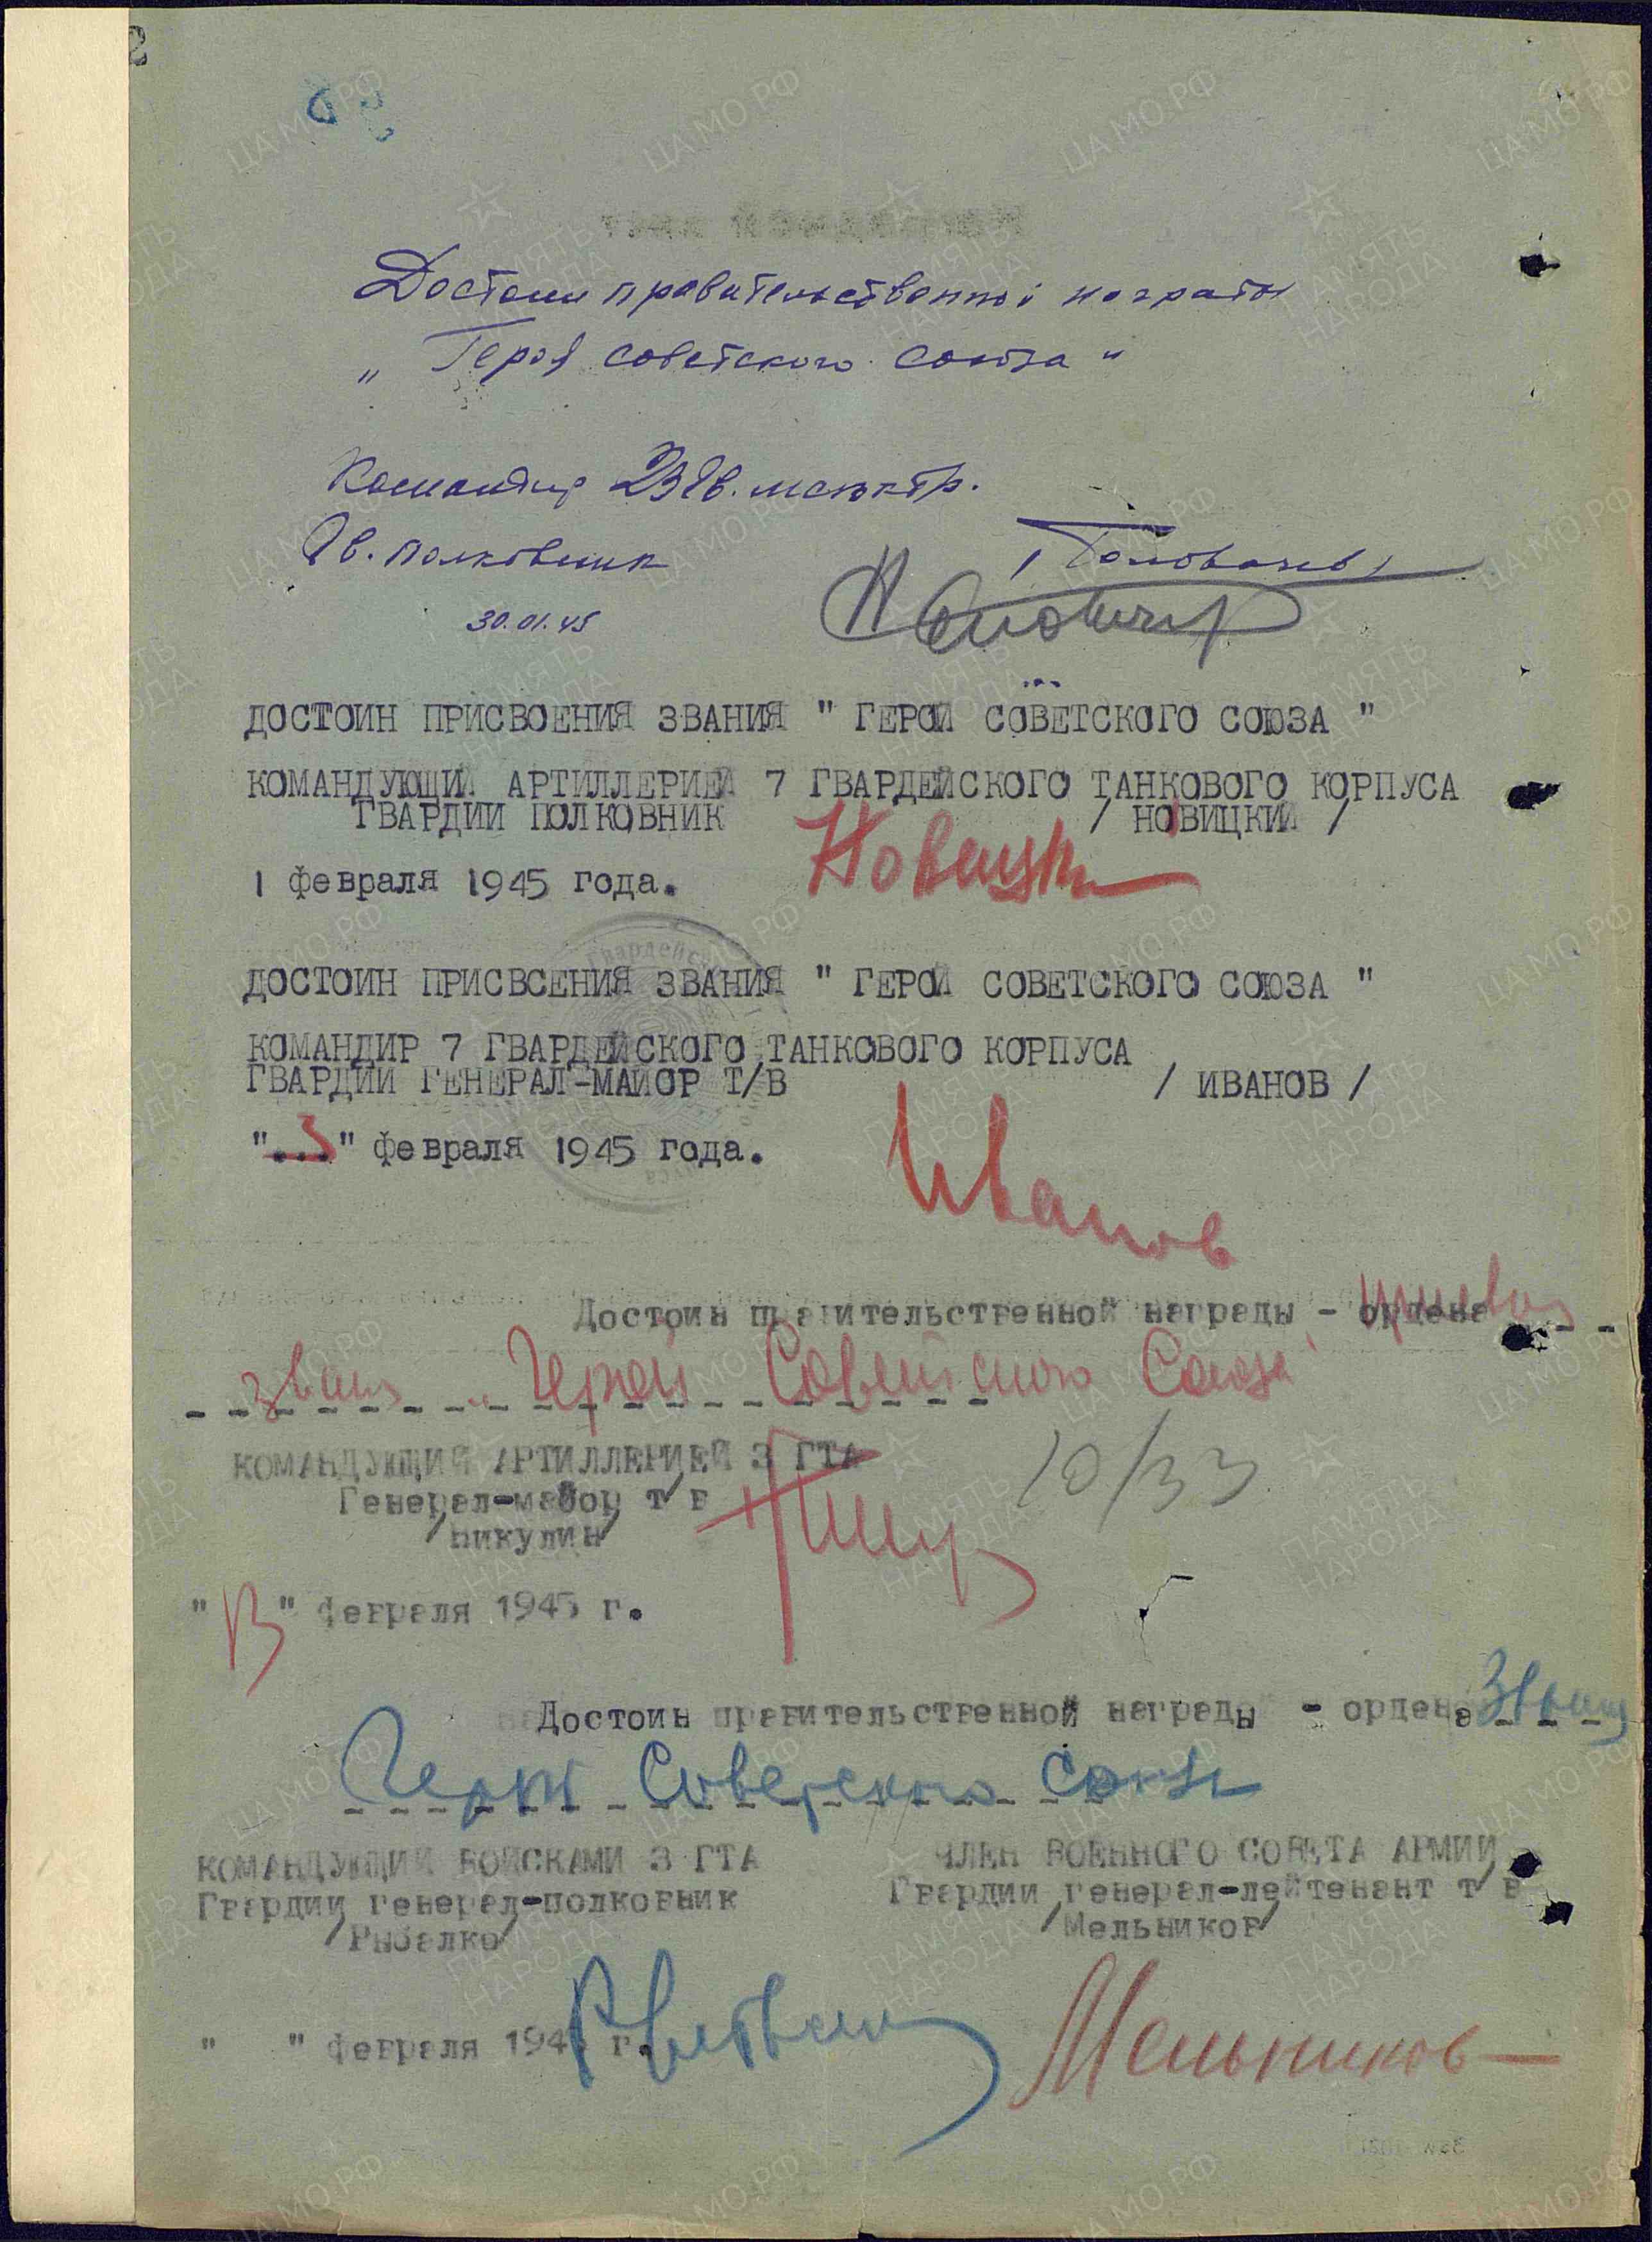 Достоин правительственной награды
„ Героя Советского Союза "
Командир 23 гв. мсбктр.
Гв. полковник / Головачев /
30.01.45
ДОСТОИН ПРИСВОЕНИЯ ЗВАНИЯ " ГЕРОЙ СОВЕТСКОГО СОЮЗА "
КОМАНДУЮЩИЙ АРТИЛЛЕРИЕЙ 7 ГВАРДЕЙСКОГО ТАНКОВОГО КОРПУСА
ГВАРДИИ ПОЛКОВНИК / НОВИЦКИЙ /
Новицки
1 февраля 1945 года.
ДОСТОИН ПРИСВСЕНИЯ ЗВАНИЯ " ГЕРОЙ СОВЕТСКОГО СОЮЗА "
КОМАНДИР 7 ГВАРДЕЙСКОГО ТАНКОВОГО КОРПУСА
ГВАРДИИ ГЕНЕРАЛ-МАЙОР Т/В / ИВАНОВ /
"3" февраля 1945 года.
Иванов
Достоин правительственной награды - ордена
звания „Герой Советского Союза"
КОМАНДУЮЩИЙ АРТИЛЛЕРИЕЙ 3 ГТА
Генерал-майор т/в
/Никулин/
10/33
"13" февраля 1945 г.
Достоин правительственной награды - ордена звания
Героя Советского Союза
КОМАНДУЮЩИЙ ВОЙСКАМИ 3 ГТА ЧЛЕН ВОЕННОГО СОВЕТА АРМИИ
Гвардии генерал-полковник Гвардии генерал-лейтенант т/в
/Рыбалко/ /Мельников/
" " февраля 1945 г.
Мельников